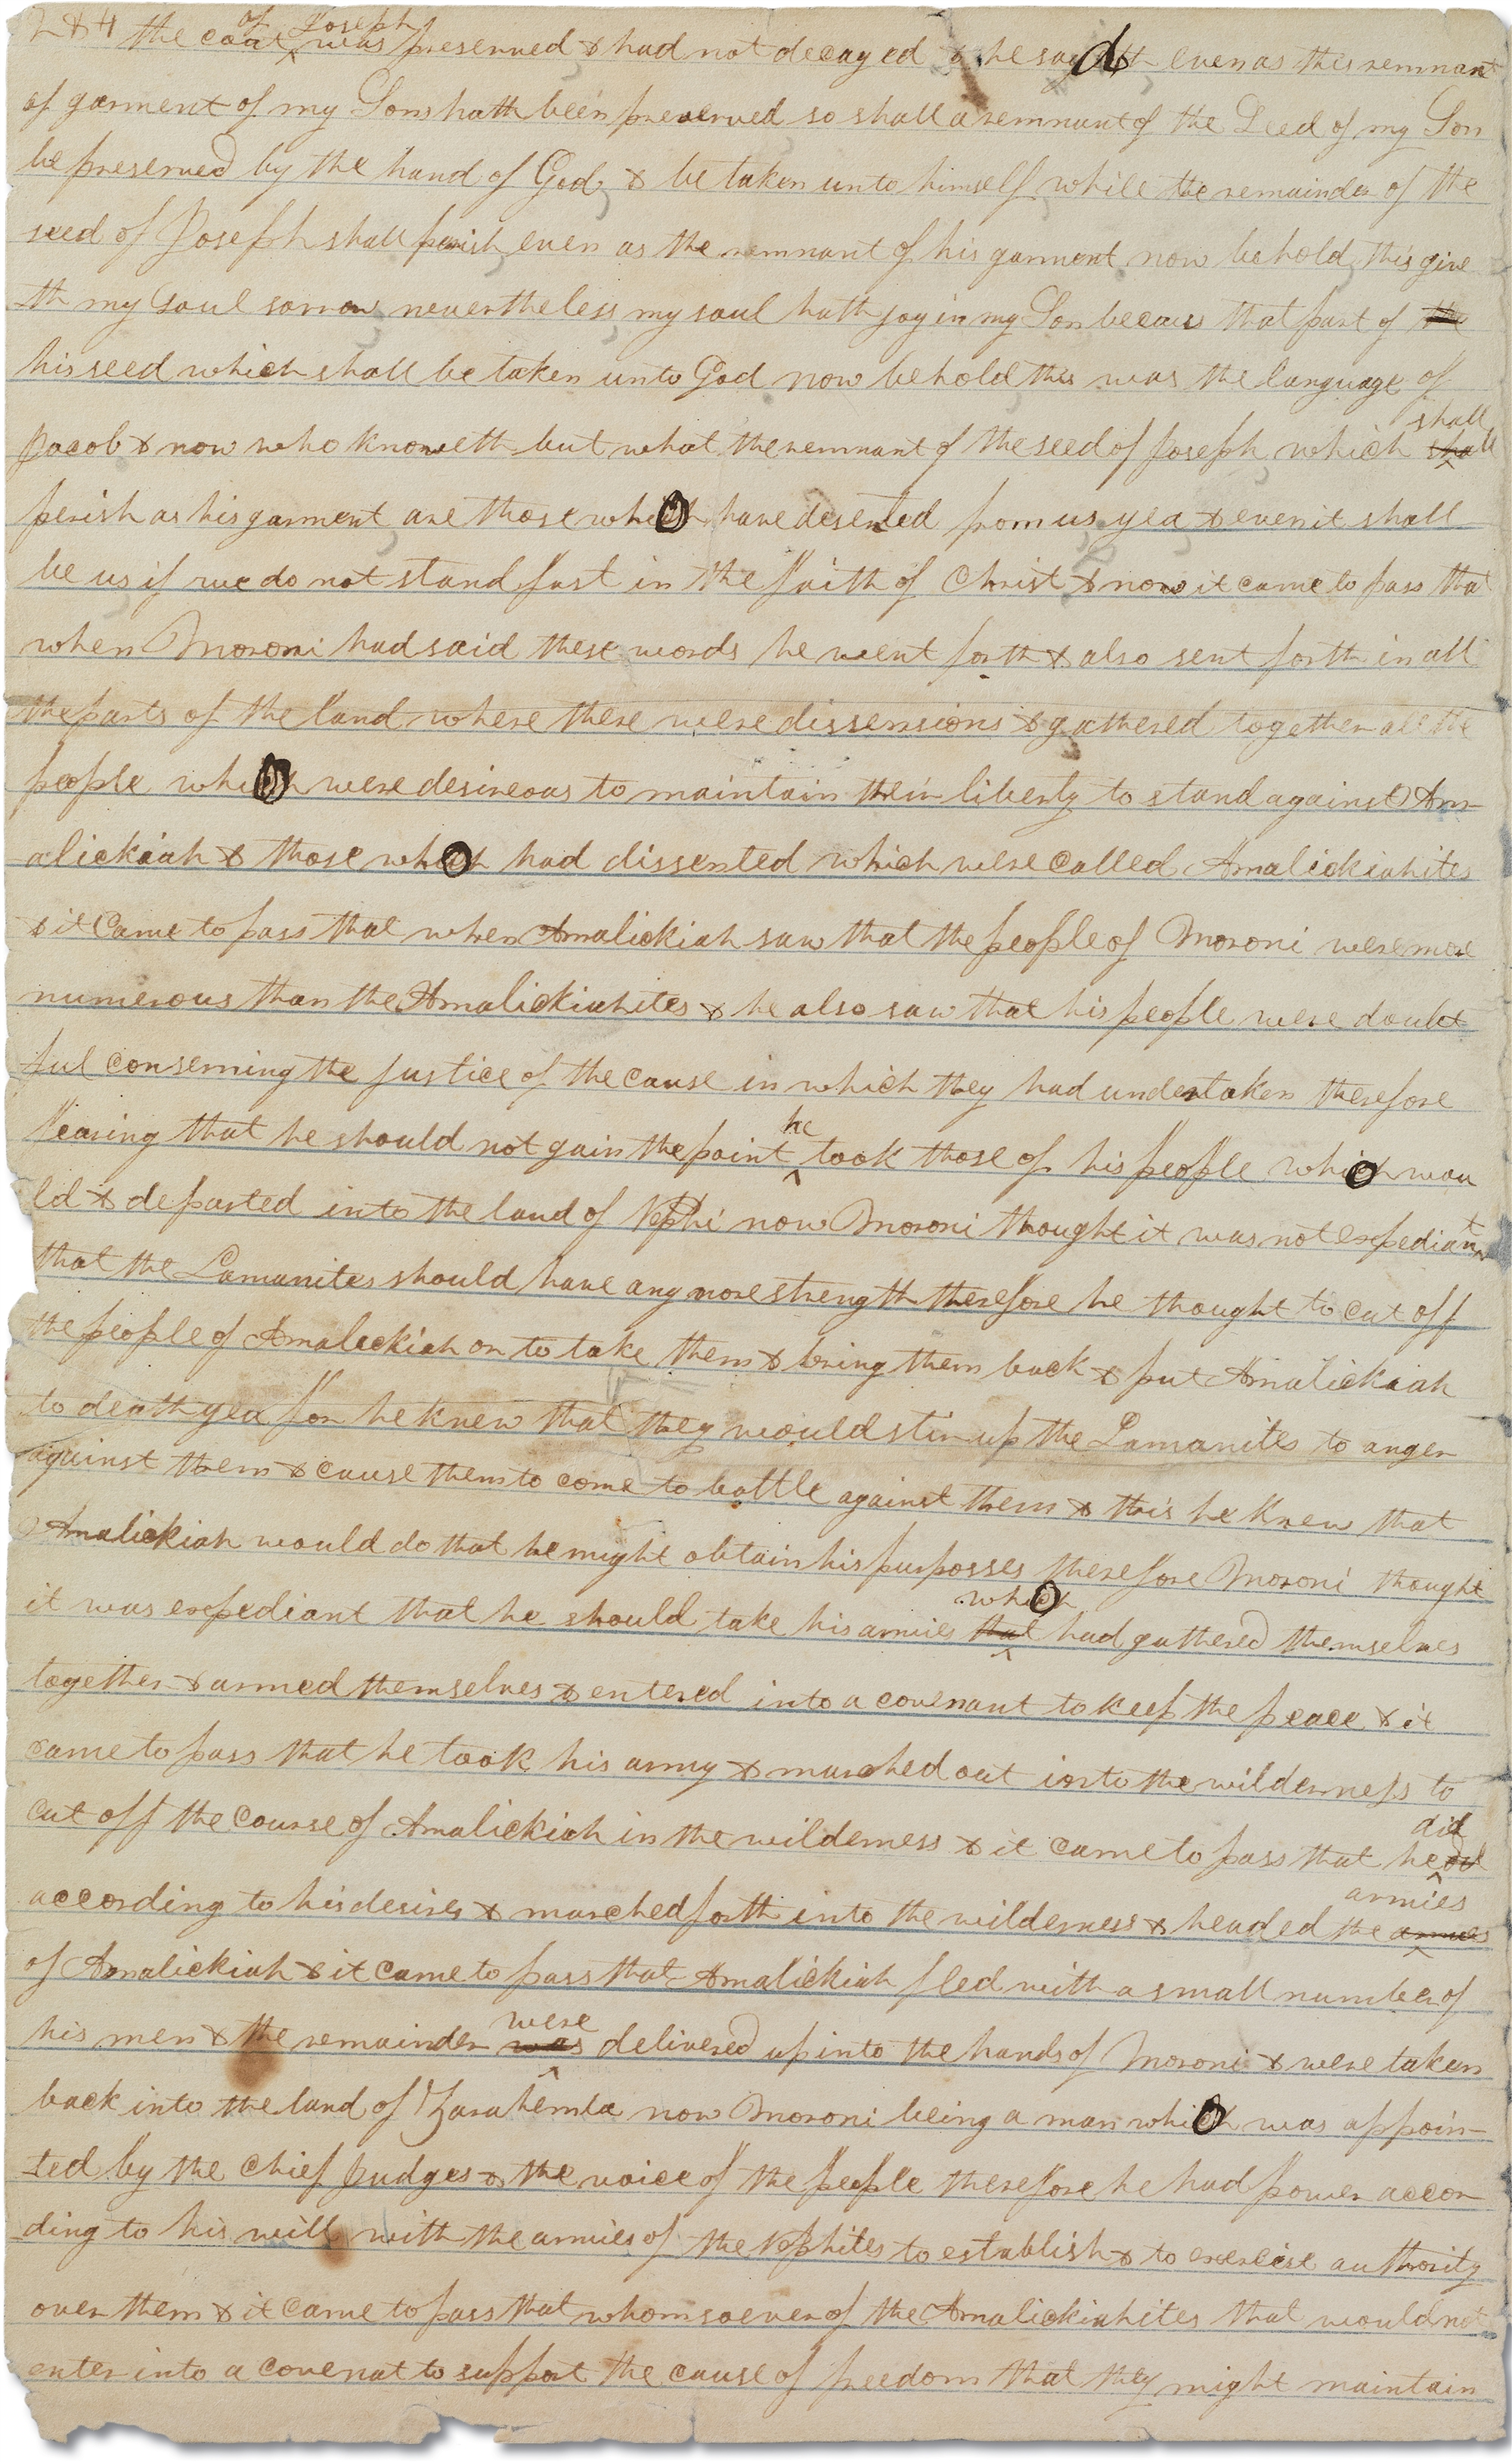 284 the coat of Joseph was preserved & had not decayed & he said even as this remnant
of garment of my Son hath been preserved so shall a remnant of the Seed of my Son
be preserved by the hand of God, & be taken unto himself while the remainder of the
seed of Joseph shall perish, even as the remnant of his garment now behold, this give
th my Soul sorrow, nevertheless, my soul hath joy in my Son becaus that part of the
his seed which shall be taken unto God now behold this was the language of
Jacob & now who knoweth but what the remnant of the seed of Joseph, which shall shall
perish as his garment are those who have deserted from us yea & even it shall
be us if we do not stand fast in the faith of Christ & now it came to pass that
when Moroni had said these words he went forth & also sent forth in all
the parts of the land where there were dissensions & gathered together all the
people who were desireous to maintain their liberty to stand against Am-
alickiah & those who had dissented which were called Amalickiahites
& it Came to pass that when Amalickiah saw that the people of Moroni were more
numerous than the Amalickiahites & he also saw that his people were doubt
ful conserning the justice of the cause in which they had undertaken therefore
fearing that he should not gain the point he took those of his people who wou
ld & departed into the land of Nephi now Moroni thought it was not expediant
that the Lamanites should have any more strength therefore he thought to cut off
the people of Amalickiah or to take them & bring them back & put Amalickiah
to death yea for he knew that they would stir up the Lamanites to anger
against them & cause them to come to battle against them & this he knew that
Amalickiah would do that he might obtain his purposses therefore Moroni thought
it was expediant that he should take his armies that who had gathered themselves
together & armed themselves & entered into a covenant to keep the peace & it
came to pass that he took his army & marched out into the wilderness to
cut off the course of Amalickiah in the wilderness & it came to pass that he did
according to his desires & marched forth into the wilderness & headed the armies armies
of Amalickiah & it came to pass that Amalickiah fled with a small number of
his men & the remainder was were delivered up into the hands of Moroni & were taken
back into the land of Zarahemla now Moroni being a man who was appoin-
ted by the Chief Judges & the voice of the people therefore he had power accor
ding to his will with the armies of the Nephites to establish & to exercise authority
over them & it came to pass that whomsoever of the Amalickiahites that would not
enter into a covenat to support the cause of freedom that they might maintain